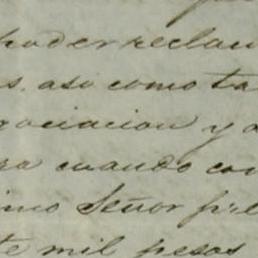 poder reclam
s. asi como ta
gociacion y a
ra cuando con
imo Señor p
te mil pesos